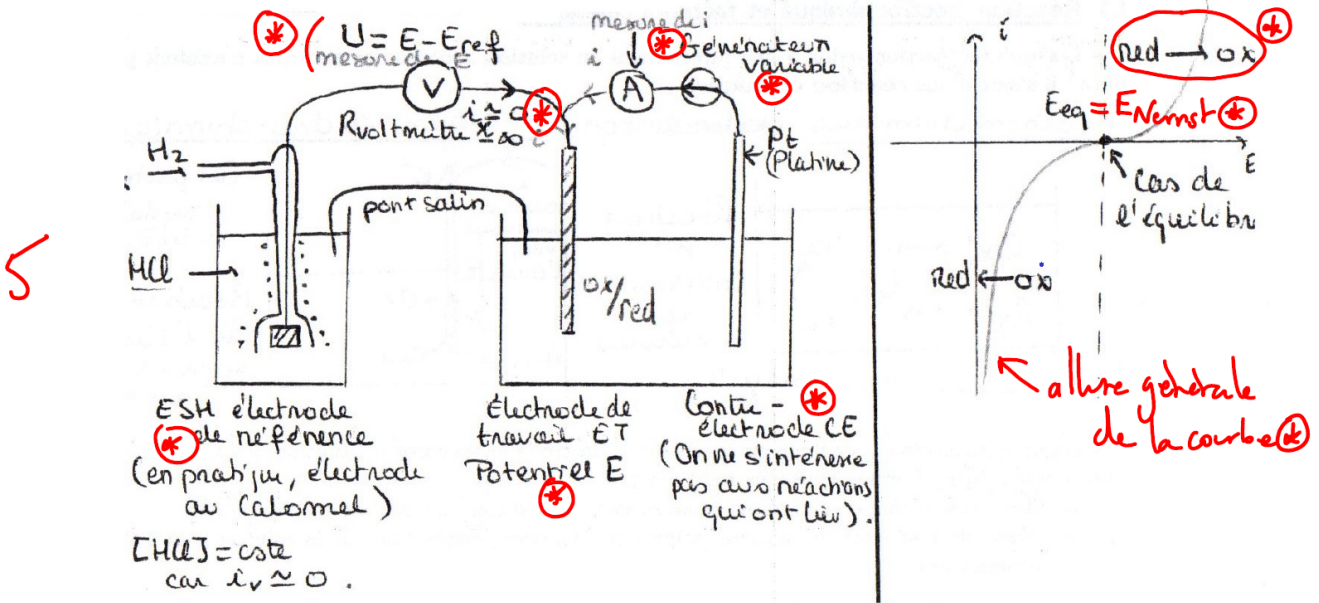 U = E - Eref
mesure de E
mesure de i
i
Générateur
variable
V
A
i ≃ 0
Rvoltmètre ≃ ∞
i
H2
Pt
(Platine)
pont salin
HCl
ox/red
5
ESH électrode
de référence
(en pratique, électrode
au Calomel)
[HCl] = cste
car iv ≃ 0.
Électrode de
travail ET
Potentiel E
Contre-
électrode CE
(On ne s'intéresse
pas aux réactions
qui ont lieu).
i
Red → ox
Eeq = ENernst
E
Cas de
l'équilibre
Red ← ox
allure générale
de la courbe